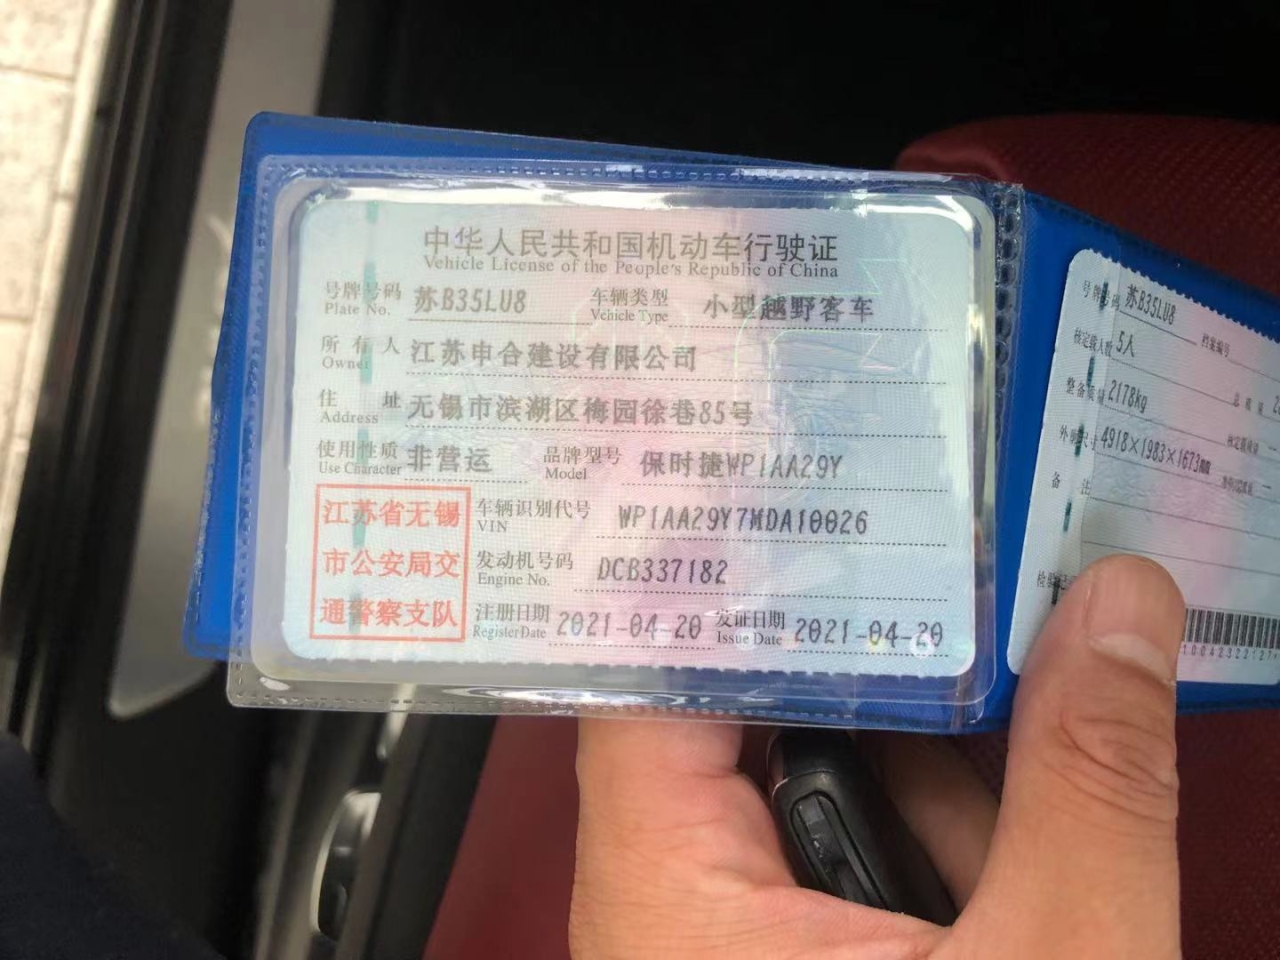 中华人民共和国机动车行驶证
Vehicle License of the People's Republic of China
号牌号码 苏B35LU8 车辆类型 小型越野客车
Plate No. Vehicle Type
所有人 江苏申合建设有限公司
Owner
住址 无锡市滨湖区梅园徐巷85号
Address
使用性质 非营运 品牌型号 保时捷WP1AA29Y
Use Character Model
江苏省无锡
市公安局交
通警察支队
车辆识别代号 WP1AA29Y7MDA10026
VIN
发动机号码 DCB337182
Engine No.
注册日期 2021-04-20 发证日期 2021-04-20
Register Date Issue Date
号牌号码 苏B35LU8 档案编号
核定载人数 5人
整备质量 2178kg 总质量
外廓尺寸 4918×1983×1673mm
备注